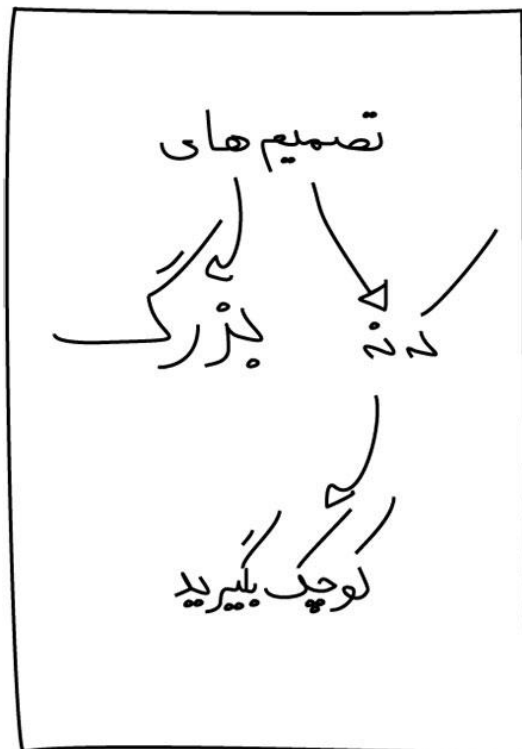 تصمیم های
که نه بزرگ
کوچک بگیرید